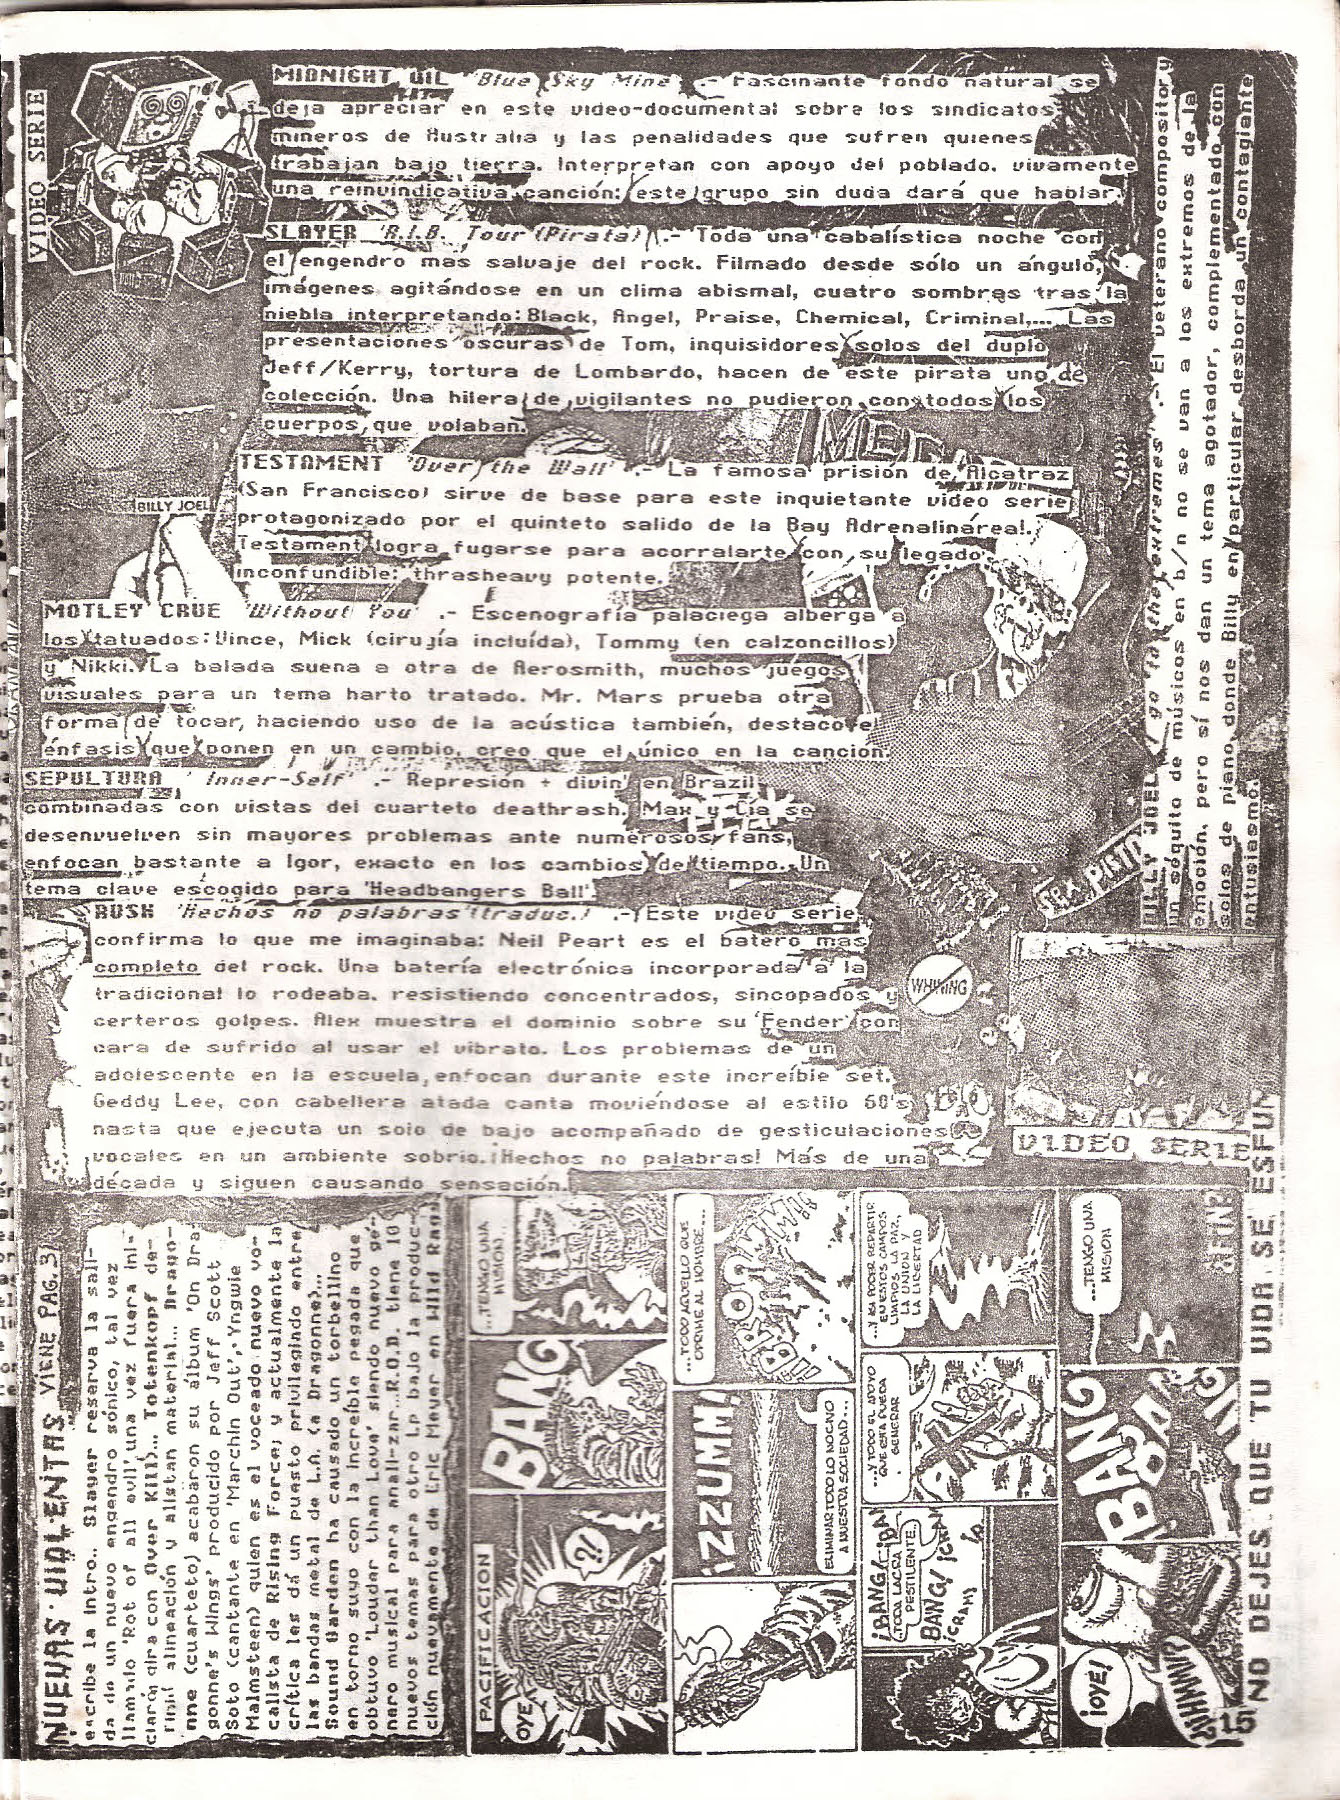 VIDEO SERIE
MIDNIGHT OIL 'Blue Sky Mine' .- Fascinante fondo natural se
deja apreciar en este video-documental sobre los sindicatos
mineros de Australia y las penalidades que sufren quienes
trabajan bajo tierra. Interpretan con apoyo del poblado, vivamente
una reinvindicativa canción: este grupo sin duda dará que hablar.
SLAYER 'R.I.B. Tour (Pirata) .- Toda una cabalística noche con
el engendro mas salvaje del rock. Filmado desde sólo un ángulo,
imágenes agitándose en un clima abismal, cuatro sombras tras la
niebla interpretando: Black, Angel, Praise, Chemical, Criminal,... Las
presentaciones oscuras de Tom, inquisidores solos del duplo
Jeff/Kerry, tortura de Lombardo, hacen de este pirata uno de
colección. Una hilera de vigilantes no pudieron con todos los
cuerpos que volaban.
TESTAMENT 'Over the Wall' .- La famosa prisión de Alcatraz
(San Francisco) sirve de base para este inquietante video serie
protagonizado por el quinteto salido de la Bay Adrenalinárea!.
Testament logra fugarse para acorralarte con su legado
inconfundible: thrasheavy potente.
BILLY JOEL
MOTLEY CRUE 'Without You' .- Escenografía palaciega alberga a
los tatuados: Vince, Mick (cirujía incluída), Tommy (en calzoncillos)
y Nikki. La balada suena a otra de Aerosmith, muchos juegos
visuales para un tema harto tratado. Mr. Mars prueba otra
forma de tocar, haciendo uso de la acústica también, destaco el
énfasis que ponen en un cambio, creo que el único en la canción.
SEPULTURA 'Inner-Self' .- Represión + divin' en Brazil
combinadas con vistas del cuarteto deathrash. Max y Cia se
desenvuelven sin mayores problemas ante numerosos fans,
enfocan bastante a Igor, exacto en los cambios de tiempo. Un
tema clave escogido para 'Headbangers Ball'
RUSH 'Hechos no palabras (traduc.) .- Este video serie
confirma lo que me imaginaba: Neil Peart es el batero mas
completo del rock. Una batería electrónica incorporada a la
tradicional lo rodeaba, resistiendo concentrados, sincopados y
certeros golpes. Alex muestra el dominio sobre su 'Fender' con
cara de sufrido al usar el vibrato. Los problemas de un
adolescente en la escuela enfocan durante este increíble set.
Geddy Lee, con cabellera atada canta moviéndose al estilo 60's
hasta que ejecuta un solo de bajo acompañado de gesticulaciones
vocales en un ambiente sobrio. ¡Hechos no palabras! Más de una
década y siguen causando sensación.
BILLY JOEL 'I go to the extremes' .- El veterano compositor y
un séquito de músicos en b/n no se van a los extremos de la
emoción, pero sí nos dan un tema agotador, complementado con
solos de piano donde Billy en particular desborda un contagiante
entusiasmo.
PINTO
WHINING
VIDEO SERIE
NUEVAS VIOLENTAS VIENE PAG. 3
escribe la intro.. Slayer reserva la sali-
da de un nuevo engendro sónico, tal vez
llamado 'Rot of all evil' una vez fuera (ni-
claron gira con Over Kill)... Totenkopf de-
finió alineación y alistan material.... Drago-
nne (cuarteto) acabaron su álbum 'On Dra
gonne's Wings' producido por Jeff Scott
Soto (cantante en 'Marchin Out', Yngwie
Malmsteen) quien es el voceado nuevo vo-
calista de Rising Force; y actualmente la
crítica les dá un puesto privilegiado entre
las bandas metal de L.A. (a Dragonne)...
Sound Garden ha causado un torbellino
en torno suyo con la increíble pegada que
obtuvo 'Louder than Love' siendo nuevo gé-
nero musical para anali-zar...R.O.D. tiene 10
nuevos temas para otro Lp bajo la produc-
ción nuevamente de Eric Meyer en Wild Rags
PACIFICACION
OYE
?!
BANG
...TENGO UNA
MISION,
¡ZZUMM!
...TODO AQUELLO QUE
OPRIME AL HOMBRE...
ELIMINAR TODO LO NOCIVO
A NUESTRA SOCIEDAD...
¡BANG
TODA LACRA
PESTILENTE,
BANG!
¡CRAM!
...Y TODO EL APOYO
QUE ESTA PUEDA
GENERAR
...Y ASI PODER REPARTIR
EN ESTOS CAMPOS
LIMPIOS LA PAZ,
LA UNION Y
LA LIBERTAD
¡OYE!
BANG
...TENGO UNA
MISION
15
NO DEJES QUE TU VIDA SE ESFUM